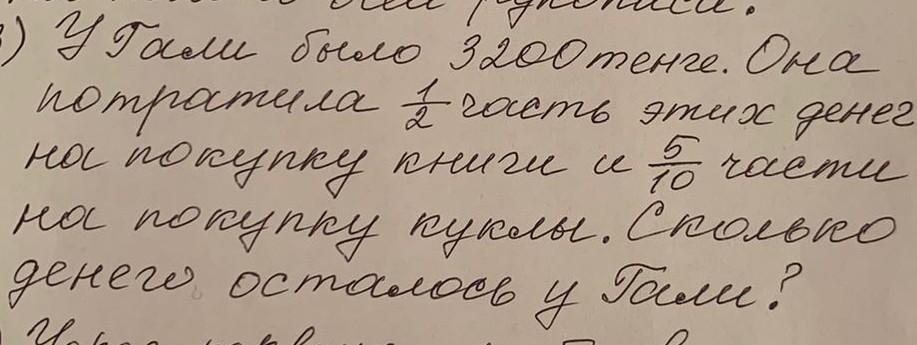 рукописи.
) У Гали было 3200 тенге. Она
потратила 1/2 часть этих денег
на покупку книги и 5/10 части
на покупку куклы. Сколько
денего осталось у Гали?